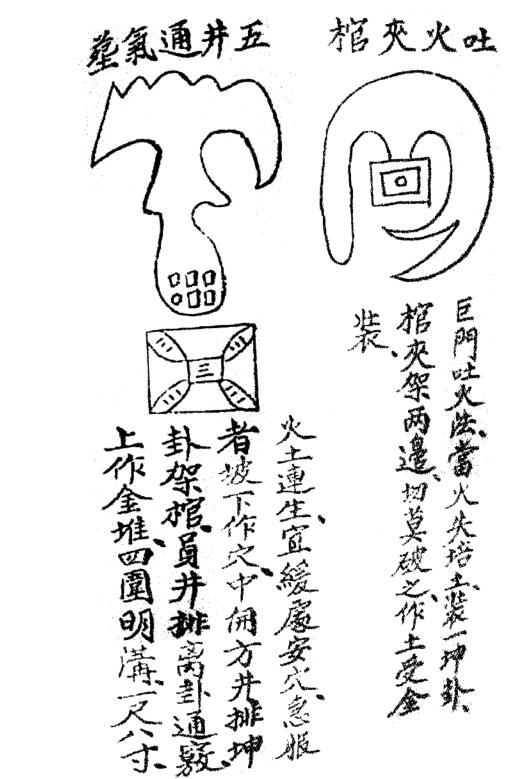 吐火夾棺
巨門吐火法、當火失培土、裝一坤卦、
棺夾架两邊、切莫破之、作土受金
裝、
五井通氣塟
三
火土連生、宜緩處安穴、急服
者坡下作穴、中開方井排坤
卦架棺、員井排离卦通竅、
上作金堆、四圍明溝、一尺八寸、